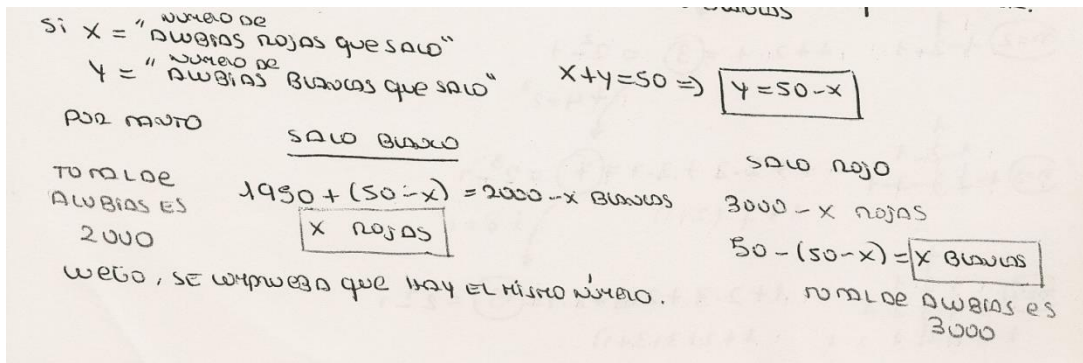 Si X = "NUMERO DE ALUBIAS ROJAS QUE SACO"
Y = "NUMERO DE ALUBIAS BLANCAS QUE SACO"
X+Y=50 => Y=50-X
POR TANTO
SACO BLANCO
SACO ROJO
TOTAL DE ALUBIAS ES 2000
1950 + (50-X) = 2000-X BLANCAS
X ROJAS
3000-X ROJAS
50-(50-X)= X BLANCAS
TOTAL DE ALUBIAS ES 3000
LUEGO, SE COMPRUEBA QUE HAY EL MISMO NÚMERO.